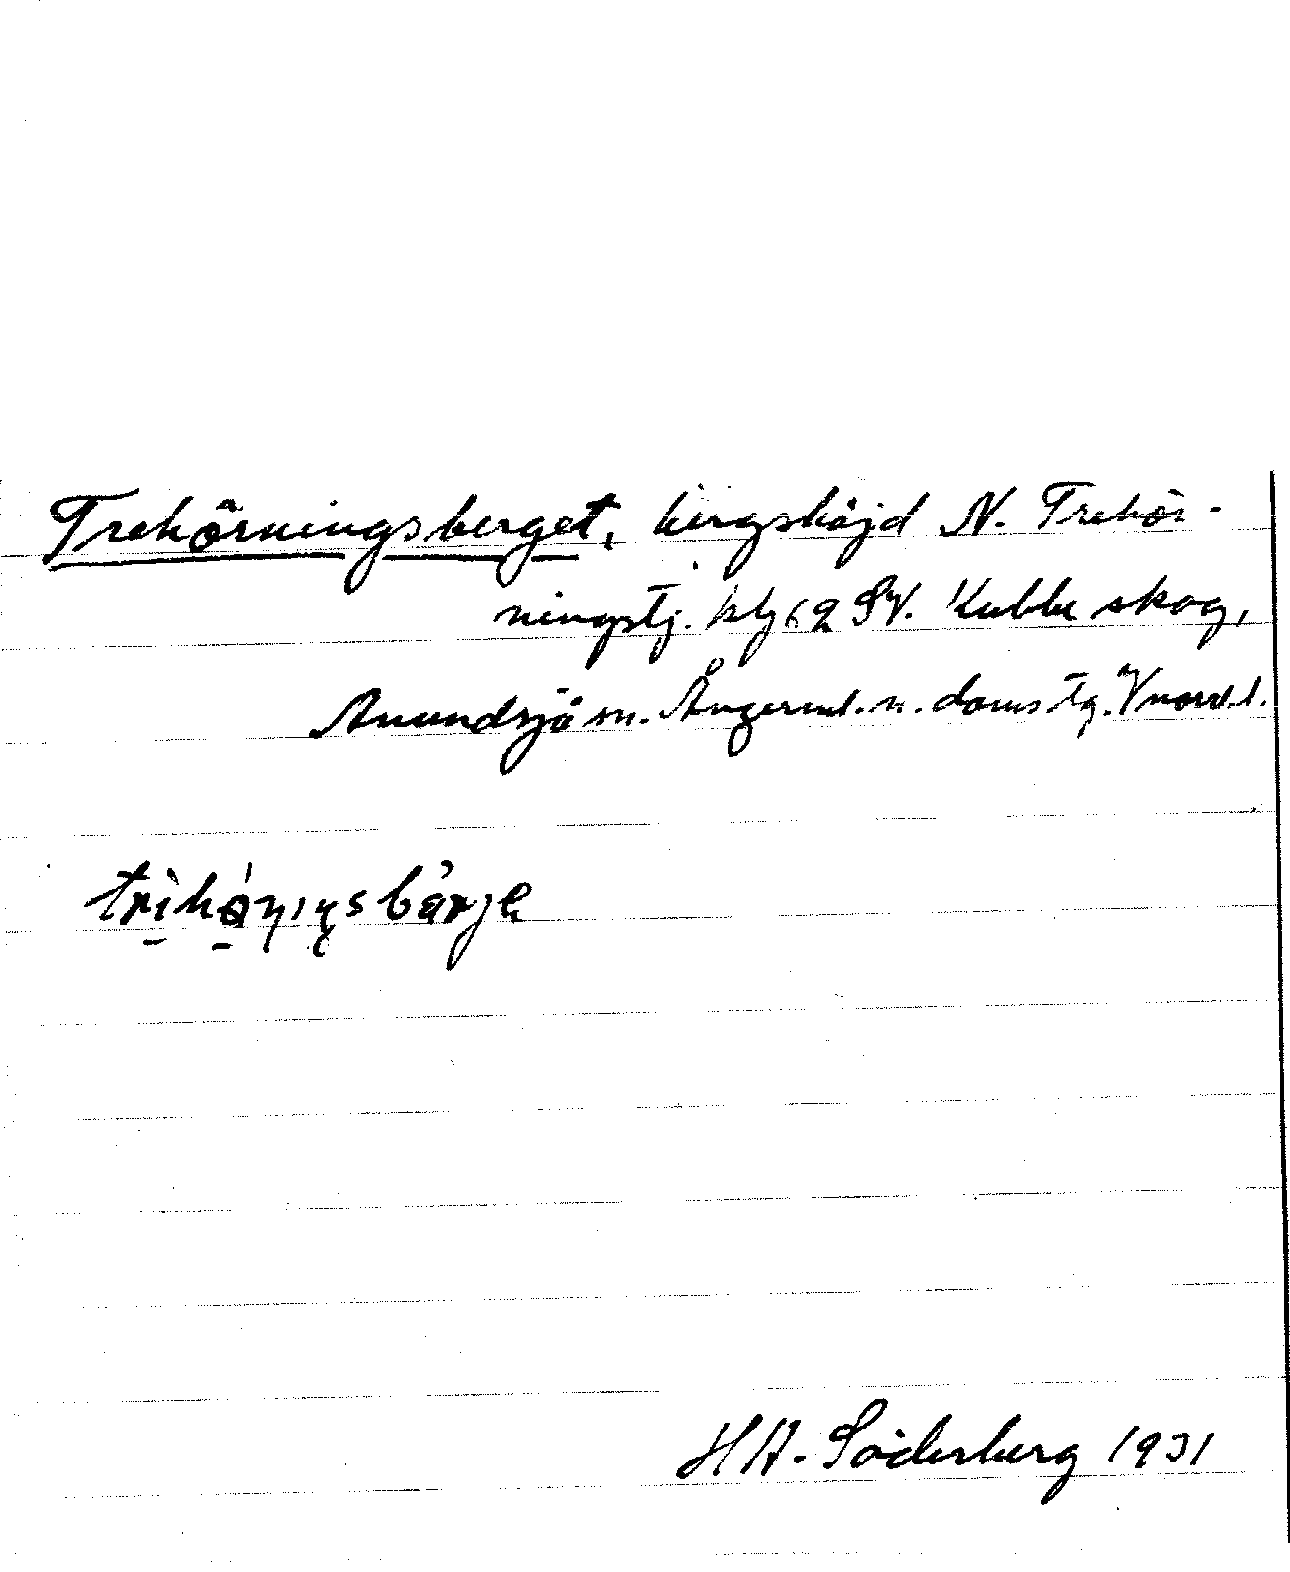 Trehörningsberget, bergshöjd N. Trehör-
ningstj. kbl 62 SV. Kubbe skog,
Anundsjö sn. Ångerml. n. doms tg. Vnorrl. l.
trihö́ṇıŋsbärje
HA. Söderberg 1931